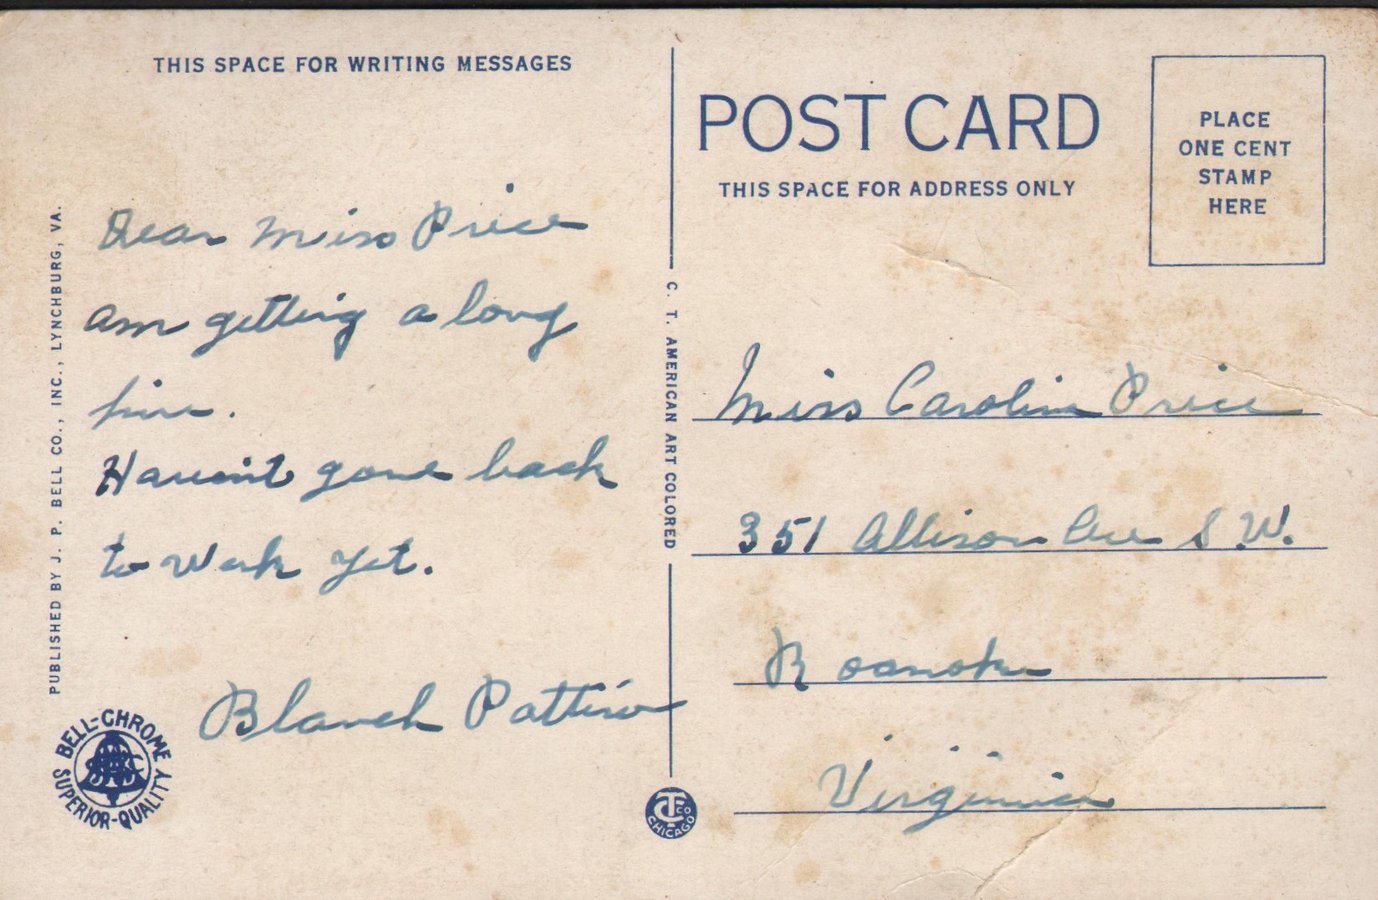 THIS SPACE FOR WRITING MESSAGES
Dear Miss Price
am getting a long
fine.
Haven't gone back
to Work yet.
Blanch Pattison
PUBLISHED BY J. P. BELL CO., INC., LYNCHBURG, VA.
BELL-CHROME
SUPERIOR-QUALITY
C. T. AMERICAN ART COLORED
CT CO
CHICAGO
POST CARD
THIS SPACE FOR ADDRESS ONLY
PLACE
ONE CENT
STAMP
HERE
Miss Caroline Price
351 Allison Ave S.W.
Roanoke
Virginia